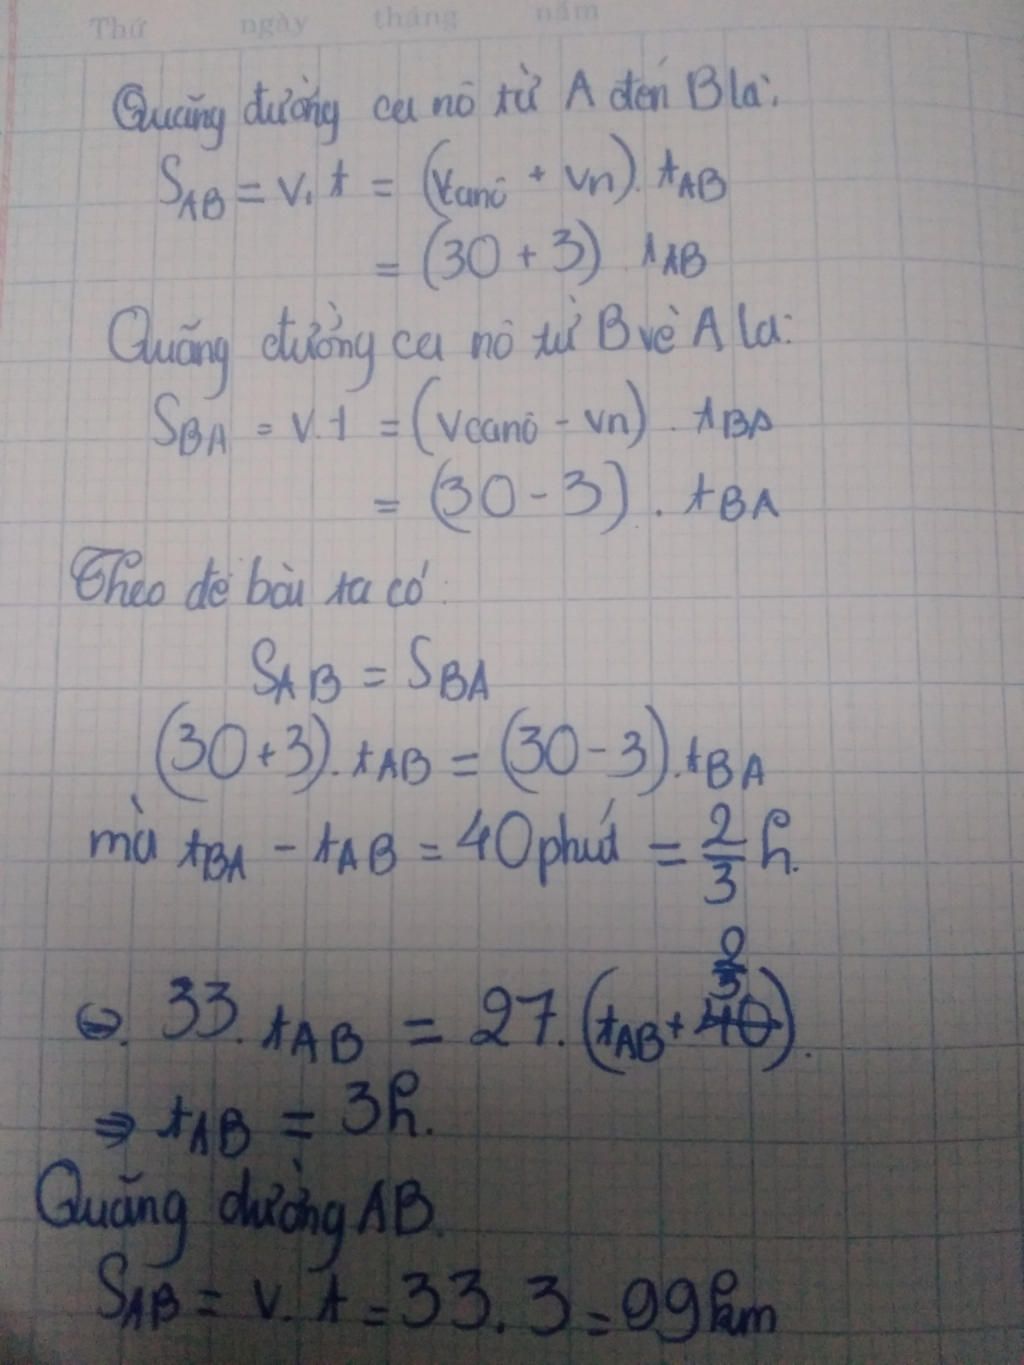 Thứ ngày tháng năm
Quãng đường ca nô từ A đến B là:
S_AB = v.t = (vcanô + vn). t_AB
= (30 + 3) t_AB
Quãng đường ca nô từ B về A là:
S_BA = v.t = (vcanô - vn). t_BA
= (30 - 3). t_BA
Theo đề bài ta có:
S_AB = S_BA
(30+3). t_AB = (30-3). t_BA
mà t_BA - t_AB = 40 phút = 2/3 h.
⇔. 33. t_AB = 27. (t_AB + 2/3).
⇒ t_AB = 3h.
Quãng đường AB.
S_AB = v. t = 33. 3 = 99km